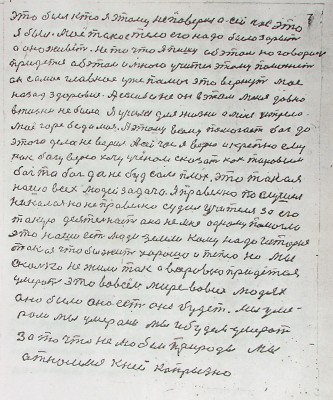 Это был кто я этому не поверил а сей час это
я был. Моё такое тело его надо было зарыть
а оно живёт. Не то что я пишу об этом но говорить
придется об этом и много учит этому поможет
он самое главное уже помог это вернуть мое
назад здоровье. А если не он в этом меня давно
в жизни не было Я урал для жизни а мне устрело
моё горе беда моя. Я этому вему помогает бог до
этого дела не верил А сей час я верю и крепко ему
как богу верю хочу учёным сказать как таковым
бойта бог да не будем плох. это такая
нашо всех людей задача. Я правельно поступил
никакая но не правельно судим учителя за его
такую деятельность она не мне одному помогла
это нашо есть люди земли кому надо история
такая чтобы жить хорошо и тепло но мы
сколько не жили так а всеровно придётся
умерать это во всём мире во всех людях
оно было оно есть оно будет. Мы уме-
рали мы умераем мы и будем умерать
За то что не любем Природы мы
относимся к ней капризно